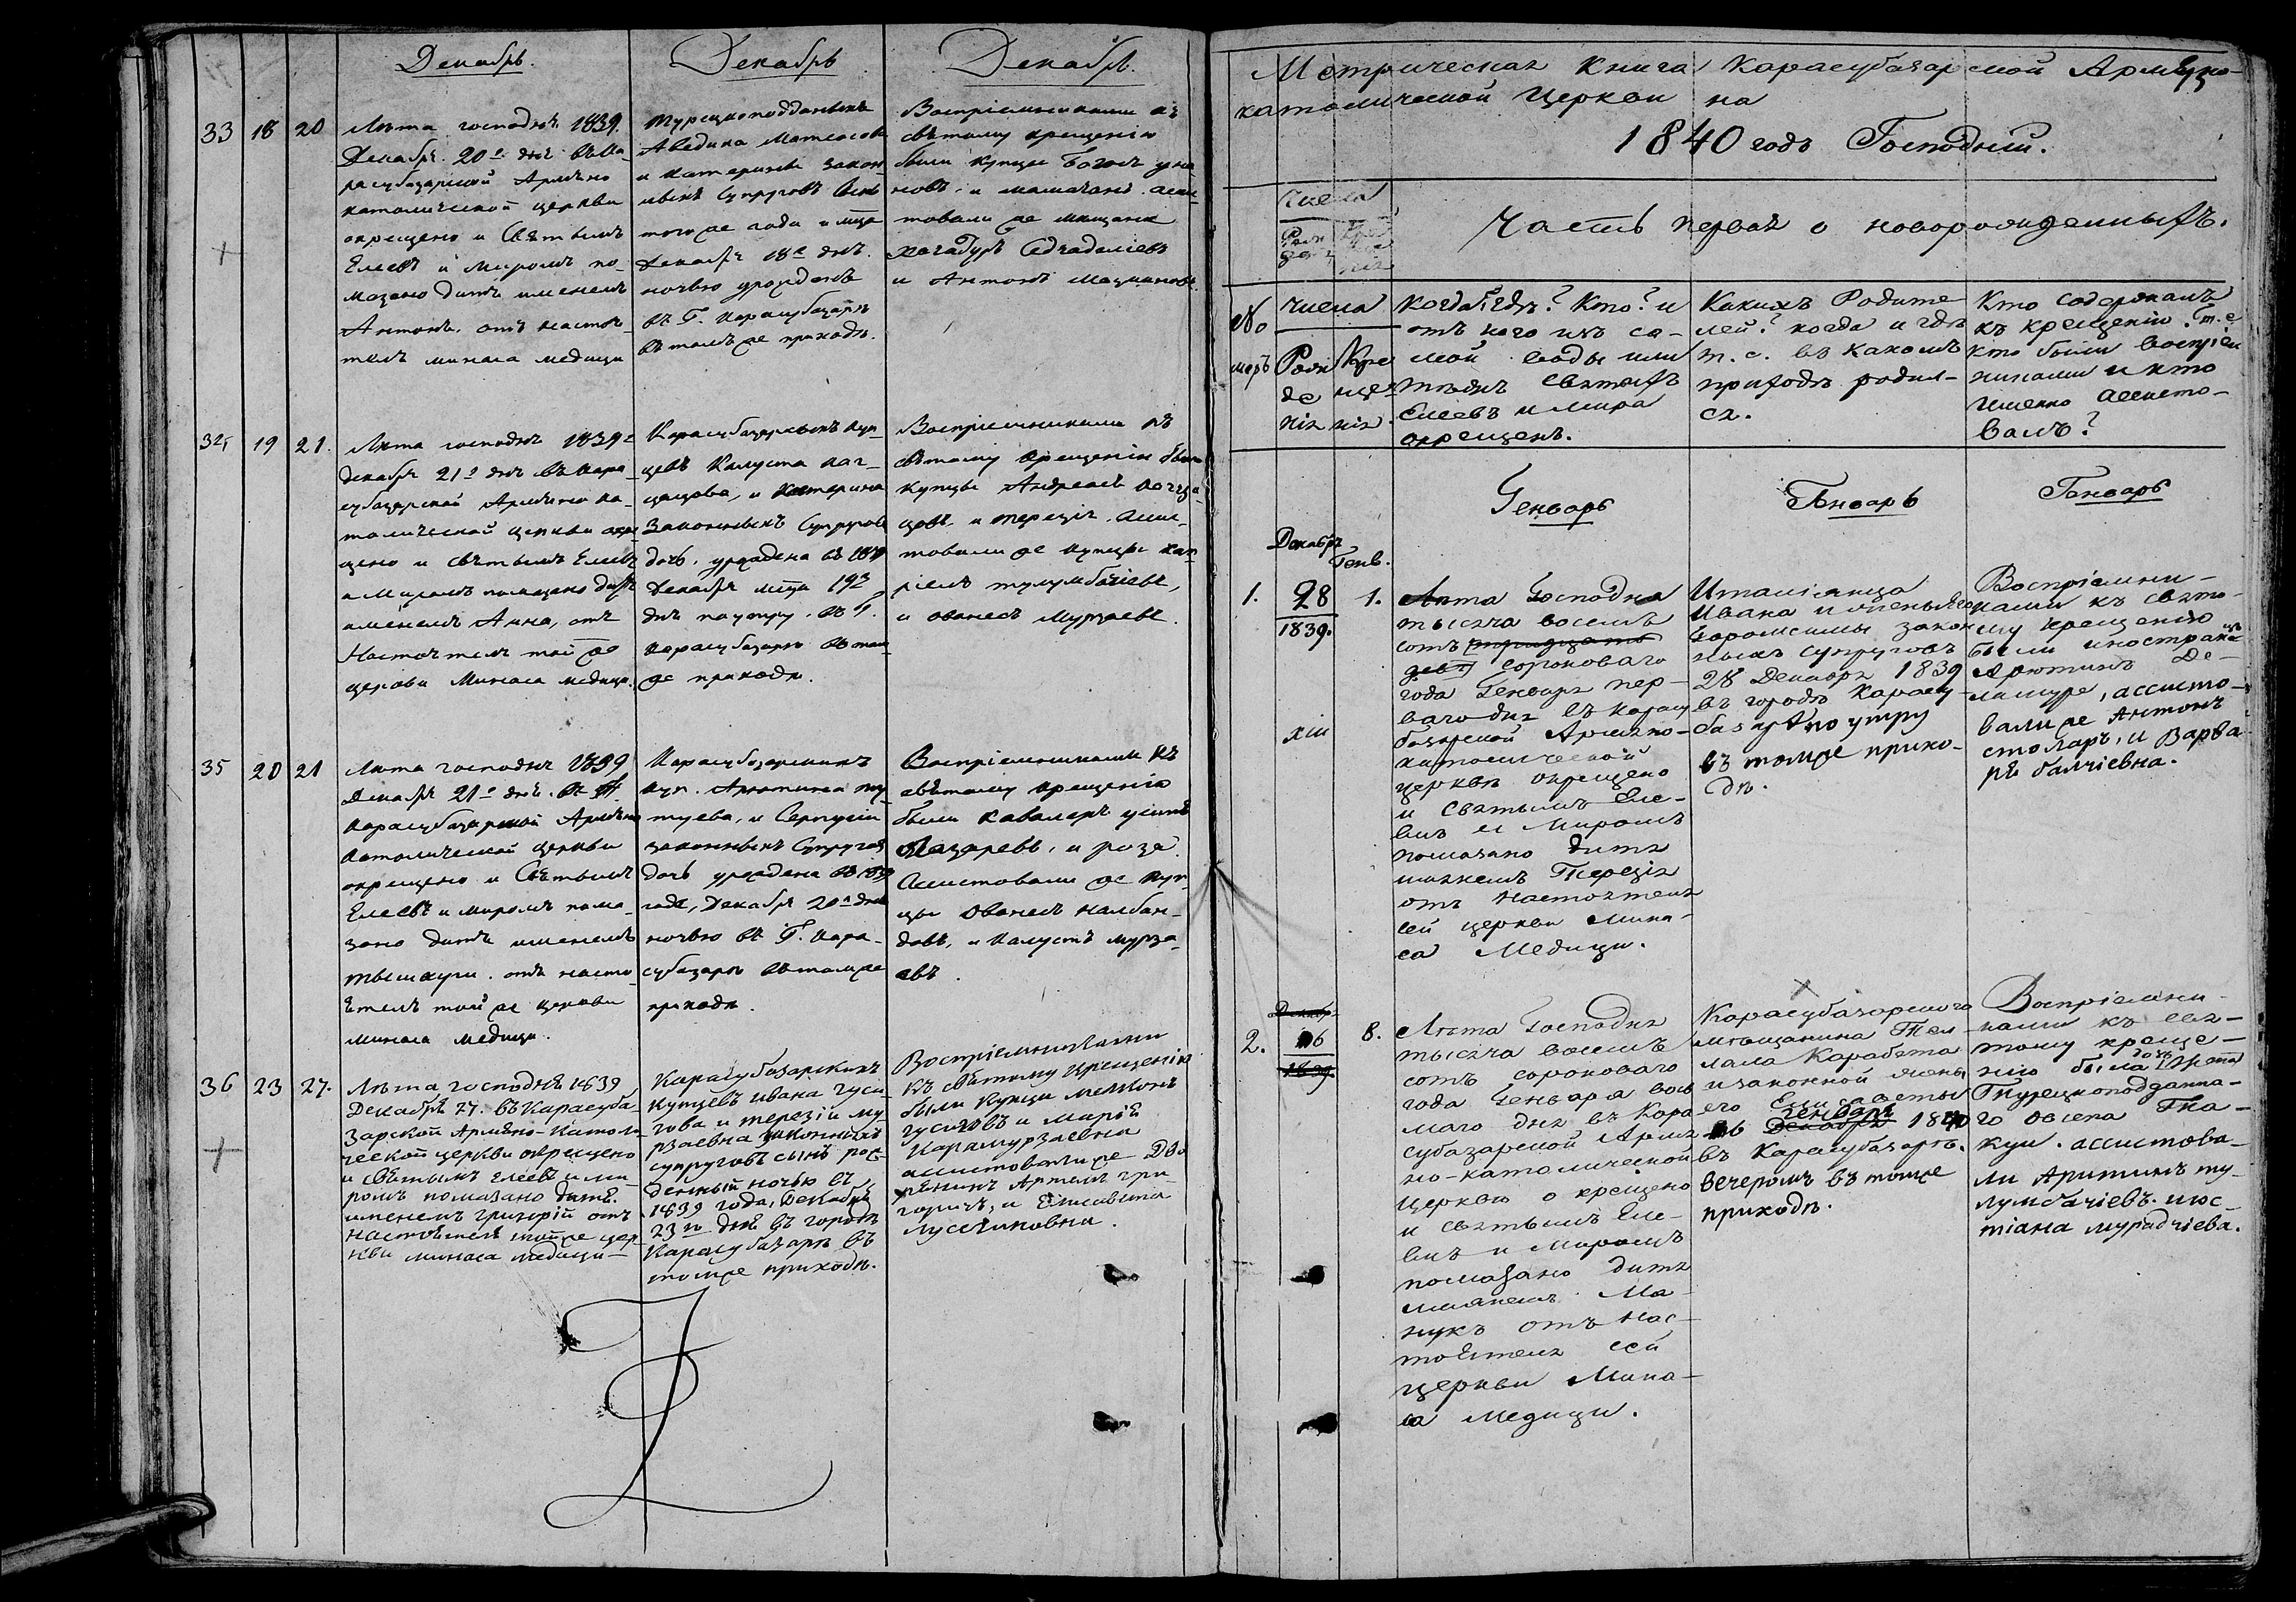 Декабрь.
Декабрь
Декабрь.
33 18 20
Лѣта господня 1839.
Декабря 20го дня въ Ка-
расубазарской Армяно
католической церкви
окрещено и Святымъ
Елеемъ и миромъ по-
мазано дитя именемъ
Антонъ, отъ настоя-
теля минаса медици
турецкоподданныхъ
Аведика
и катерины закон-
ныхъ супруговъ сынъ
того же года и мца
Декабря 18го дня.
ночью урожденъ
въ Г. Карасубазарѣ
въ томъ же приходѣ.
Воспріемниками къ
святому крещенію
были купцы
новъ, и
товали же мещане
хачадуръ
и Антонъ
34 19 21.
Лѣта господня 1839го
декабря 21го дня въ кара
субазарской Армяно ка-
толической церкви окре
щено и святымъ Елеемъ
и Миромъ помазано дитя
именемъ Анна, отъ
Настоятеля той же
церкви Минаса медици.
Карасубазарскихъ куп-
цевъ Калуста
и Катерина
Законныхъ Супруговъ
дочь, урождена въ 1839
Декабря мца 19го
дня по утру, въ Г.
карасубазарѣ въ том
же приходѣ.
Воспріемниками къ
святому крещенію были
купцы Андреасъ
и терезія. Ассис-
товали же купцы
тулумбачіевъ,
и ованесъ Мурзаевъ.
35 20 21
Лѣта господня 1839
Декабря 21го дня. въ
карасубазарской Армяно
католической церкви
окрещено и Святымъ
Елеемъ и миромъ пома-
зано дитя именемъ
отъ насто
ятеля той же церкви
минаса медици.
Карасубазарскихъ
куп. Арютина ту-
туева, и Серпугіи
законныхъ Супруговъ
дочь урождена въ 1839
годѣ, Декабря 20го дня
ночью въ Г. кара-
субазарѣ въ томъ же
приходѣ.
Воспріемниками къ
святому крещенію
были кавалеръ
Лазаревъ, и роза.
Ассистовали же куп-
цы Ованесъ налбан-
довъ, и калустъ мурза-
евъ.
36 23 27.
Лѣта господня 1839
Декабря 27. въ Карасуба-
зарской Армяно-Католи-
ческой церкви окрещено
и святымъ елеемъ и ми-
ромъ помазано дитя.
именемъ григорій отъ
настоятеля той же цер-
кви минаса медици
Карасубазарскихъ
купцевъ ивана гуси-
кова и терезіи му-
рзаевна законныхъ
супруговъ сынъ рож-
денный ночью въ
1839 года, Декабря
23го дня въ городѣ
Карасубазарѣ въ
томже приходѣ.
Воспріемниками
къ святому крещенію
были купцы мелконъ
гусиковъ и марія
карамурзаевна
ассистовали же Дво
рянинъ Артемъ гри-
горичъ, и Елисавета
Лусегиновна.
Метрическая Книга Карасубазарской Армяно-
католической Церкви на
1840 годъ Господній.
Числа
Часть первая о новорожденныхъ.
No
меръ
числа
Рож
де
нія
Кре
щен
нія.
Когда? Гдѣ? Кто? и
отъ кого изъ са-
мой воды или
тѣхъ святыхъ
Елеевъ и мира
окрещенъ.
Какихъ Родите
лей? когда и гдѣ
т. е. въ какомъ
приходѣ родил-
ся.
Кто содержалъ
къ крещенію. т. е
кто были воспріем
никами и кто
именно ассисто-
валъ?
Генварь
Генварь
Генварь
Декабрь
Генв.
1. 28 1.
1839.
XIII
Лѣта Господня
тысяча восемь
сотъ тридцать
девя сороковаго
года Генваря пер-
ваго дня въ карасу
базарской Армяно-
католической
церкви окрещено
и святымъ Еле-
емъ и Миромъ
помазано дитя
имянемъ Терезія
отъ Настоятеля
сей церкви Мина-
са Медици.
Италіянца
Ивана и жены его
Іеромимы закон
ныхъ супруговъ
28 Декабря 1839
въ городѣ Карасу-
базарѣ по утру
въ томже прихо-
дѣ.
Воспріемни-
ками къ свято-
му крещенію
были иностранецъ
Арютинъ Де-
ламуре, ассисто-
вали же Антонъ
столяръ, и Варва-
ра балчіевна.
Декабр
2. 6 8.
1839.
Лѣта Господня
тысяча восемь
сотъ сороковаго
года Генваря вось
маго дня въ кара
субазарской Армя
но-католической
церкви о крещено
и святымъ Еле-
емъ и Миромъ
помазано дитя
имянемъ Ма-
нукъ отъ Нас-
тоятеля сей
церкви Мина-
са Медици.
Карасубазарскаго
мѣщанина Тел
лала Карабета
и законной жены
его Елисаветы
Генваря
6 Декабря 1840
въ Карасубазарѣ.
вечеромъ въ томже
приходѣ.
Воспріемни-
нами къ свя-
тому креще-
нію была
дочь
Турецкоподданна-
го Овсепа
ассистова-
ли Аритинъ ту-
лумбачіевъ. июс-
тіана мурадчіева.